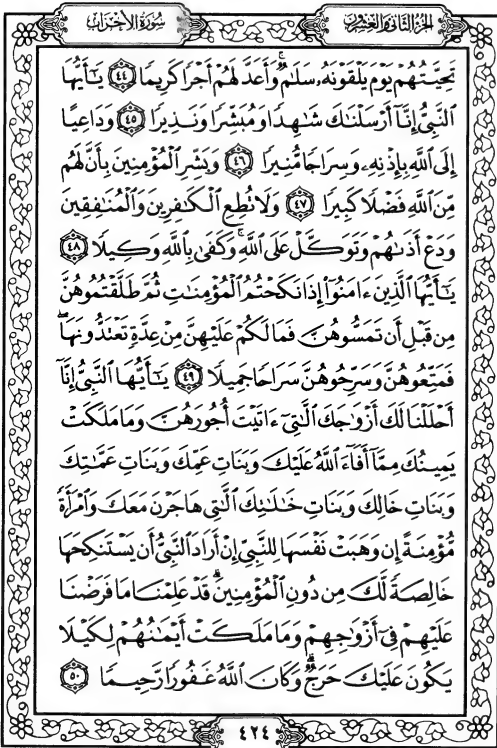 الجزء الثاني والعشرون
سورة الأحزاب
تَحِيَّتُهُمْ يَوْمَ يَلْقَوْنَهُۥ سَلَٰمٌۚ وَأَعَدَّ لَهُمْ أَجْرًا كَرِيمًا ٤٤ يَٰٓأَيُّهَا
ٱلنَّبِىُّ إِنَّآ أَرْسَلْنَٰكَ شَٰهِدًا وَمُبَشِّرًا وَنَذِيرًا ٤٥ وَدَاعِيًا
إِلَى ٱللَّهِ بِإِذْنِهِۦ وَسِرَاجًا مُّنِيرًا ٤٦ وَبَشِّرِ ٱلْمُؤْمِنِينَ بِأَنَّ لَهُم
مِّنَ ٱللَّهِ فَضْلًا كَبِيرًا ٤٧ وَلَا تُطِعِ ٱلْكَٰفِرِينَ وَٱلْمُنَٰفِقِينَ
وَدَعْ أَذَىٰهُمْ وَتَوَكَّلْ عَلَى ٱللَّهِۚ وَكَفَىٰ بِٱللَّهِ وَكِيلًا ٤٨
يَٰٓأَيُّهَا ٱلَّذِينَ ءَامَنُوٓا۟ إِذَا نَكَحْتُمُ ٱلْمُؤْمِنَٰتِ ثُمَّ طَلَّقْتُمُوهُنَّ
مِن قَبْلِ أَن تَمَسُّوهُنَّ فَمَا لَكُمْ عَلَيْهِنَّ مِنْ عِدَّةٍ تَعْتَدُّونَهَاۖ
فَمَتِّعُوهُنَّ وَسَرِّحُوهُنَّ سَرَاحًا جَمِيلًا ٤٩ يَٰٓأَيُّهَا ٱلنَّبِىُّ إِنَّآ
أَحْلَلْنَا لَكَ أَزْوَٰجَكَ ٱلَّٰتِىٓ ءَاتَيْتَ أُجُورَهُنَّ وَمَا مَلَكَتْ
يَمِينُكَ مِمَّآ أَفَآءَ ٱللَّهُ عَلَيْكَ وَبَنَاتِ عَمِّكَ وَبَنَاتِ عَمَّٰتِكَ
وَبَنَاتِ خَالِكَ وَبَنَاتِ خَٰلَٰتِكَ ٱلَّٰتِى هَاجَرْنَ مَعَكَ وَٱمْرَأَةً
مُّؤْمِنَةً إِن وَهَبَتْ نَفْسَهَا لِلنَّبِىِّ إِنْ أَرَادَ ٱلنَّبِىُّ أَن يَسْتَنكِحَهَا
خَالِصَةً لَّكَ مِن دُونِ ٱلْمُؤْمِنِينَۗ قَدْ عَلِمْنَا مَا فَرَضْنَا
عَلَيْهِمْ فِىٓ أَزْوَٰجِهِمْ وَمَا مَلَكَتْ أَيْمَٰنُهُمْ لِكَيْلَا
يَكُونَ عَلَيْكَ حَرَجٌۗ وَكَانَ ٱللَّهُ غَفُورًا رَّحِيمًا ٥٠
٤٢٤